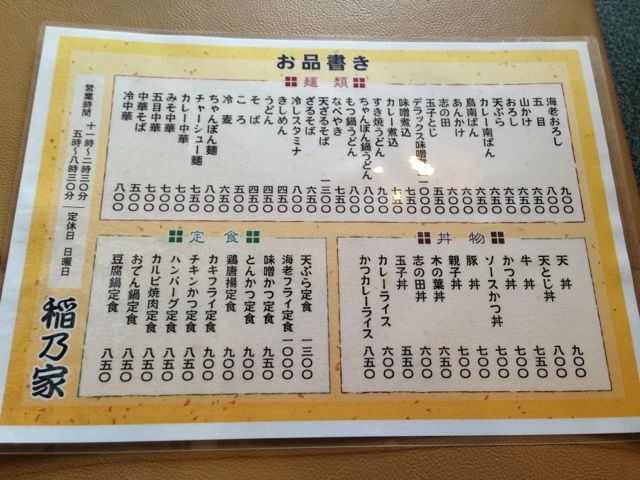 お品書き
麺類
海老おろし 九〇〇
五目 八〇〇
山かけ
おろし
天ぷら
カレー南ばん
鳥南ばん
あんかけ
志の田
玉子とじ
デラックス味噌煮込
味噌煮込
カレー煮込
すき焼うどん
ちゃんぽん鍋うどん
もつ鍋うどん
なべやき
天ざるそば 一三〇〇
ざるそば
冷しスタミナ
きしめん
うどん
そば
ころ
冷麦
ちゃんぽん麺
チャーシュー麺
カレー中華
みそ中華
五目中華
中華そば
冷中華 八〇〇
丼物
天丼 九〇〇
天とじ丼 九〇〇
牛丼 七五〇
かつ丼 八〇〇
ソースかつ丼 八〇〇
豚丼 七〇〇
親子丼 七〇〇
木の葉丼 六〇〇
志の田丼
玉子丼 五五〇
カレーライス 六〇〇
かつカレーライス 八五〇
定食
天ぷら定食 一三〇〇
海老フライ定食 一〇〇〇
味噌かつ定食 九〇〇
とんかつ定食 九〇〇
鶏唐揚定食 九〇〇
カキフライ定食 九〇〇
チキンかつ定食 九〇〇
ハンバーグ定食 八五〇
カルビ焼肉定食 八五〇
おでん鍋定食 八五〇
豆腐鍋定食 八五〇
営業時間 十一時〜二時三〇分
五時〜八時三〇分
定休日 日曜日
稲乃家